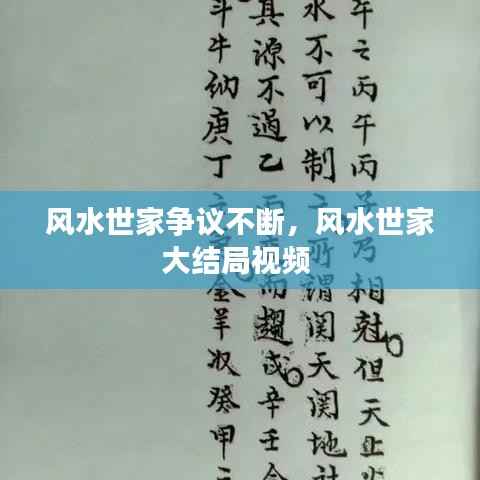 午之丙午丙子乃相尅但天上火
水不可以制之所谓関天関地社
其源不過乙丙
而趨戍辛壬会
斗牛纳庚丁
金羊収癸甲之
风水世家争议不断，风水世家
大结局视频